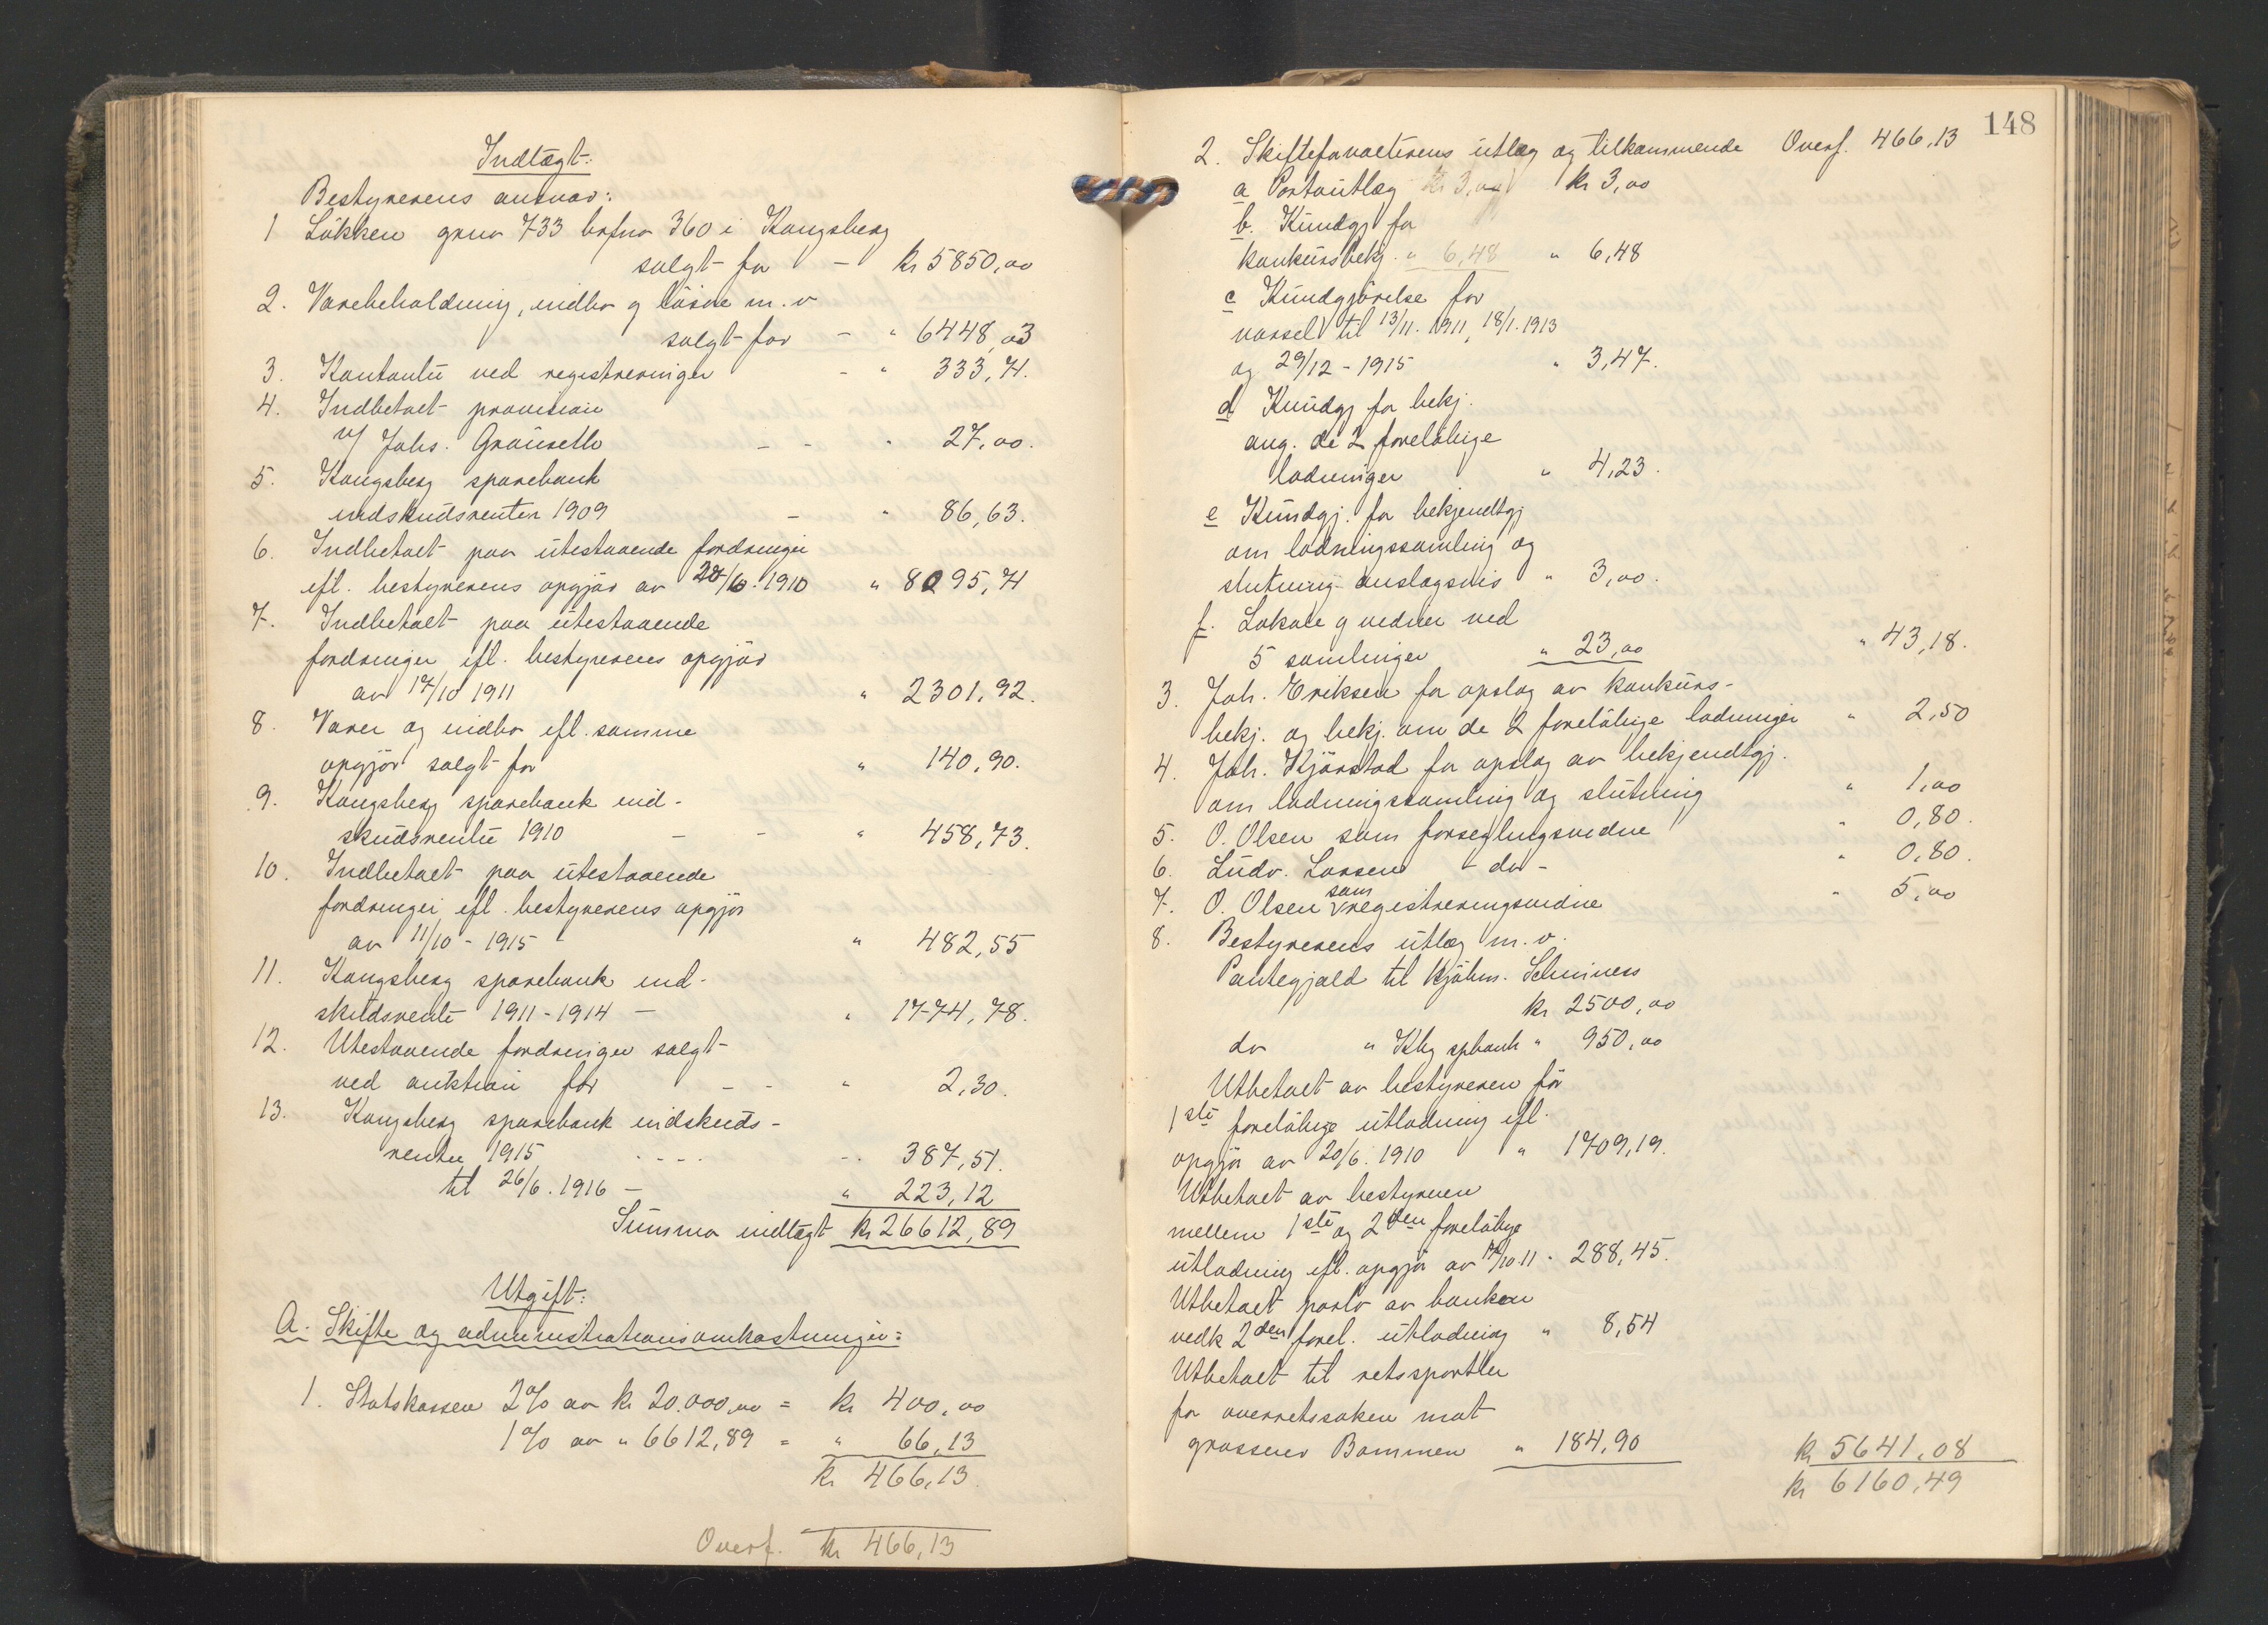 Indtægt:
Bestyrerens ansvar:
1 Løkken grno 733 brfno 360 i Kongsberg
solgt for - kr 5850,00
2. Varebeholdning, indbo og løsøre m. v
solgt for - " 6448,03
3. Kontanter ved registreringen - " 333,71.
4. Indbetalt provision
v/ Johs. Grønseth - - " 27,00.
5. Kongsberg sparebank
indskudsrenter 1909 - " 86,63.
6. Indbetalt paa utestaaende fordringer
ifl. bestyrerens opgjør av 20/6. 1910 " 8095,71
7. Indbetalt paa utestaaende
fordringer ifl. bestyrerens opgjør
av 17/10 1911 " 2301,92.
8. Varer og indbo ifl. samme
opgjør solgt for " 140,90.
9. Kongsberg sparebank ind-
skudsrente 1910 - - " 458,73.
10. Indbetalt paa utestaaende
fordringer ifl. bestyrerens opgjør
av 11/10 - 1915 " 482,55
11. Kongsberg sparebank ind-
skudsrente 1911 - 1914 - " 1774,78.
12. Utestaaende fordringer solgt
ved auktion for - - " 2,30.
13. Kongsberg sparebank indskuds-
renter 1915 - - - - -. 387,51.
til 26/6. 1916 - " 223,12
Summa indtægt kr 26612,89
Utgift:
A. Skifte og administrationsomkostninger:
1. Statskassen 2% av kr 20.000,00 = kr 400,00
1% av " 6612,89 = " 66,13
kr 466,13.
Overf. kr 466,13
148
2. Skifteforvalterens utlæg og tilkommende Overf. 466,13
a Portoutlæg kr 3,00 kr 3,00
b. Kundgj for
konkursbekj. " 6,48 " 6,48
c Kundgjørelse for
varsel til 13/11. 1911, 18/1. 1913
og 29/12 - 1915 " 3,47.
d Kundgj for bekj.
ang. de 2 foreløbige
lodninger " 4,23.
e Kundgj. for bekjendtgj
om lodningssamling og
slutning anslagsvis " 3,00.
f. Lokale og vidner ved
5 samlinger " 23,00 " 43,18.
3. Joh. Eriksen for opslag av konkurs-
bekj. og bekj. om de 2 foreløbige lodninger " 2,50
4. Joh. Kjørstad for opslag av bekjendtgj.
om lodningssamling og slutning " 1,00
5. O. Olsen som forseglingsvidne " 0,80.
6. Ludv. Larsen - do - " 0,80.
7. O. Olsen som registreringsvidne " 5,00
8. Bestyrerens utlæg m. v.
Pantegjæld til kjøbm.
kr 2500,00
do " Kbg spbank " 950,00
Utbetalt av bestyreren før
1ste foreløbige utlodning ifl.
opgjør av 20/6. 1910 " 1709,19.
Utbetalt av bestyreren
mellem 1ste og 2den foreløbige
utlodning ifl. opgjør av 17/10 11 " 288,45.
Utbetalt porto av banken
vedk 2den forel. utlodning " 8,54
Utbetalt til retssportler
for overretssaken mot
grosserer Bommen " 184,90 kr 5641,08
kr 6160,49